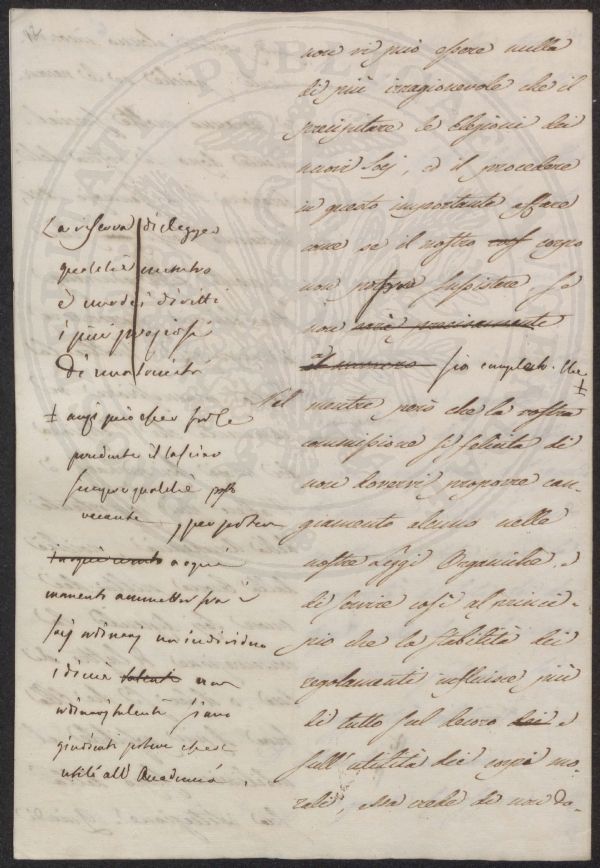 non vi può essere nulla
di più irragionevole che il
precipitare le Elezioni dei
nuovi Socj, e il procedere
in questo importante affare
come se il nostro corpo
non potesse sussistere, se
non
sia completo.
Nel mentre però che la vostra
commissione si felicita di
non dovervi proporre can-
giamento alcuno nelle
nostre Leggi Organiche, e
di servire così al princi-
pio che la stabilità dei
regolamenti influisce più
di tutto sul decoro e
sull'utilità dei corpi mo-
rali, Essa crede di non do-
La riserva di elegger
qualche membro
è uno dei diritti
i più preziosi
di una società
‡ anzi può esser
prudente il lasciar
sempre qualche posto
vacante, per poter
a ogni
momento ammetter fra i
socj ordinarj un individuo
i di cui non
ordinarj talenti siano
giudicati potere essere
utili all'Accademia.